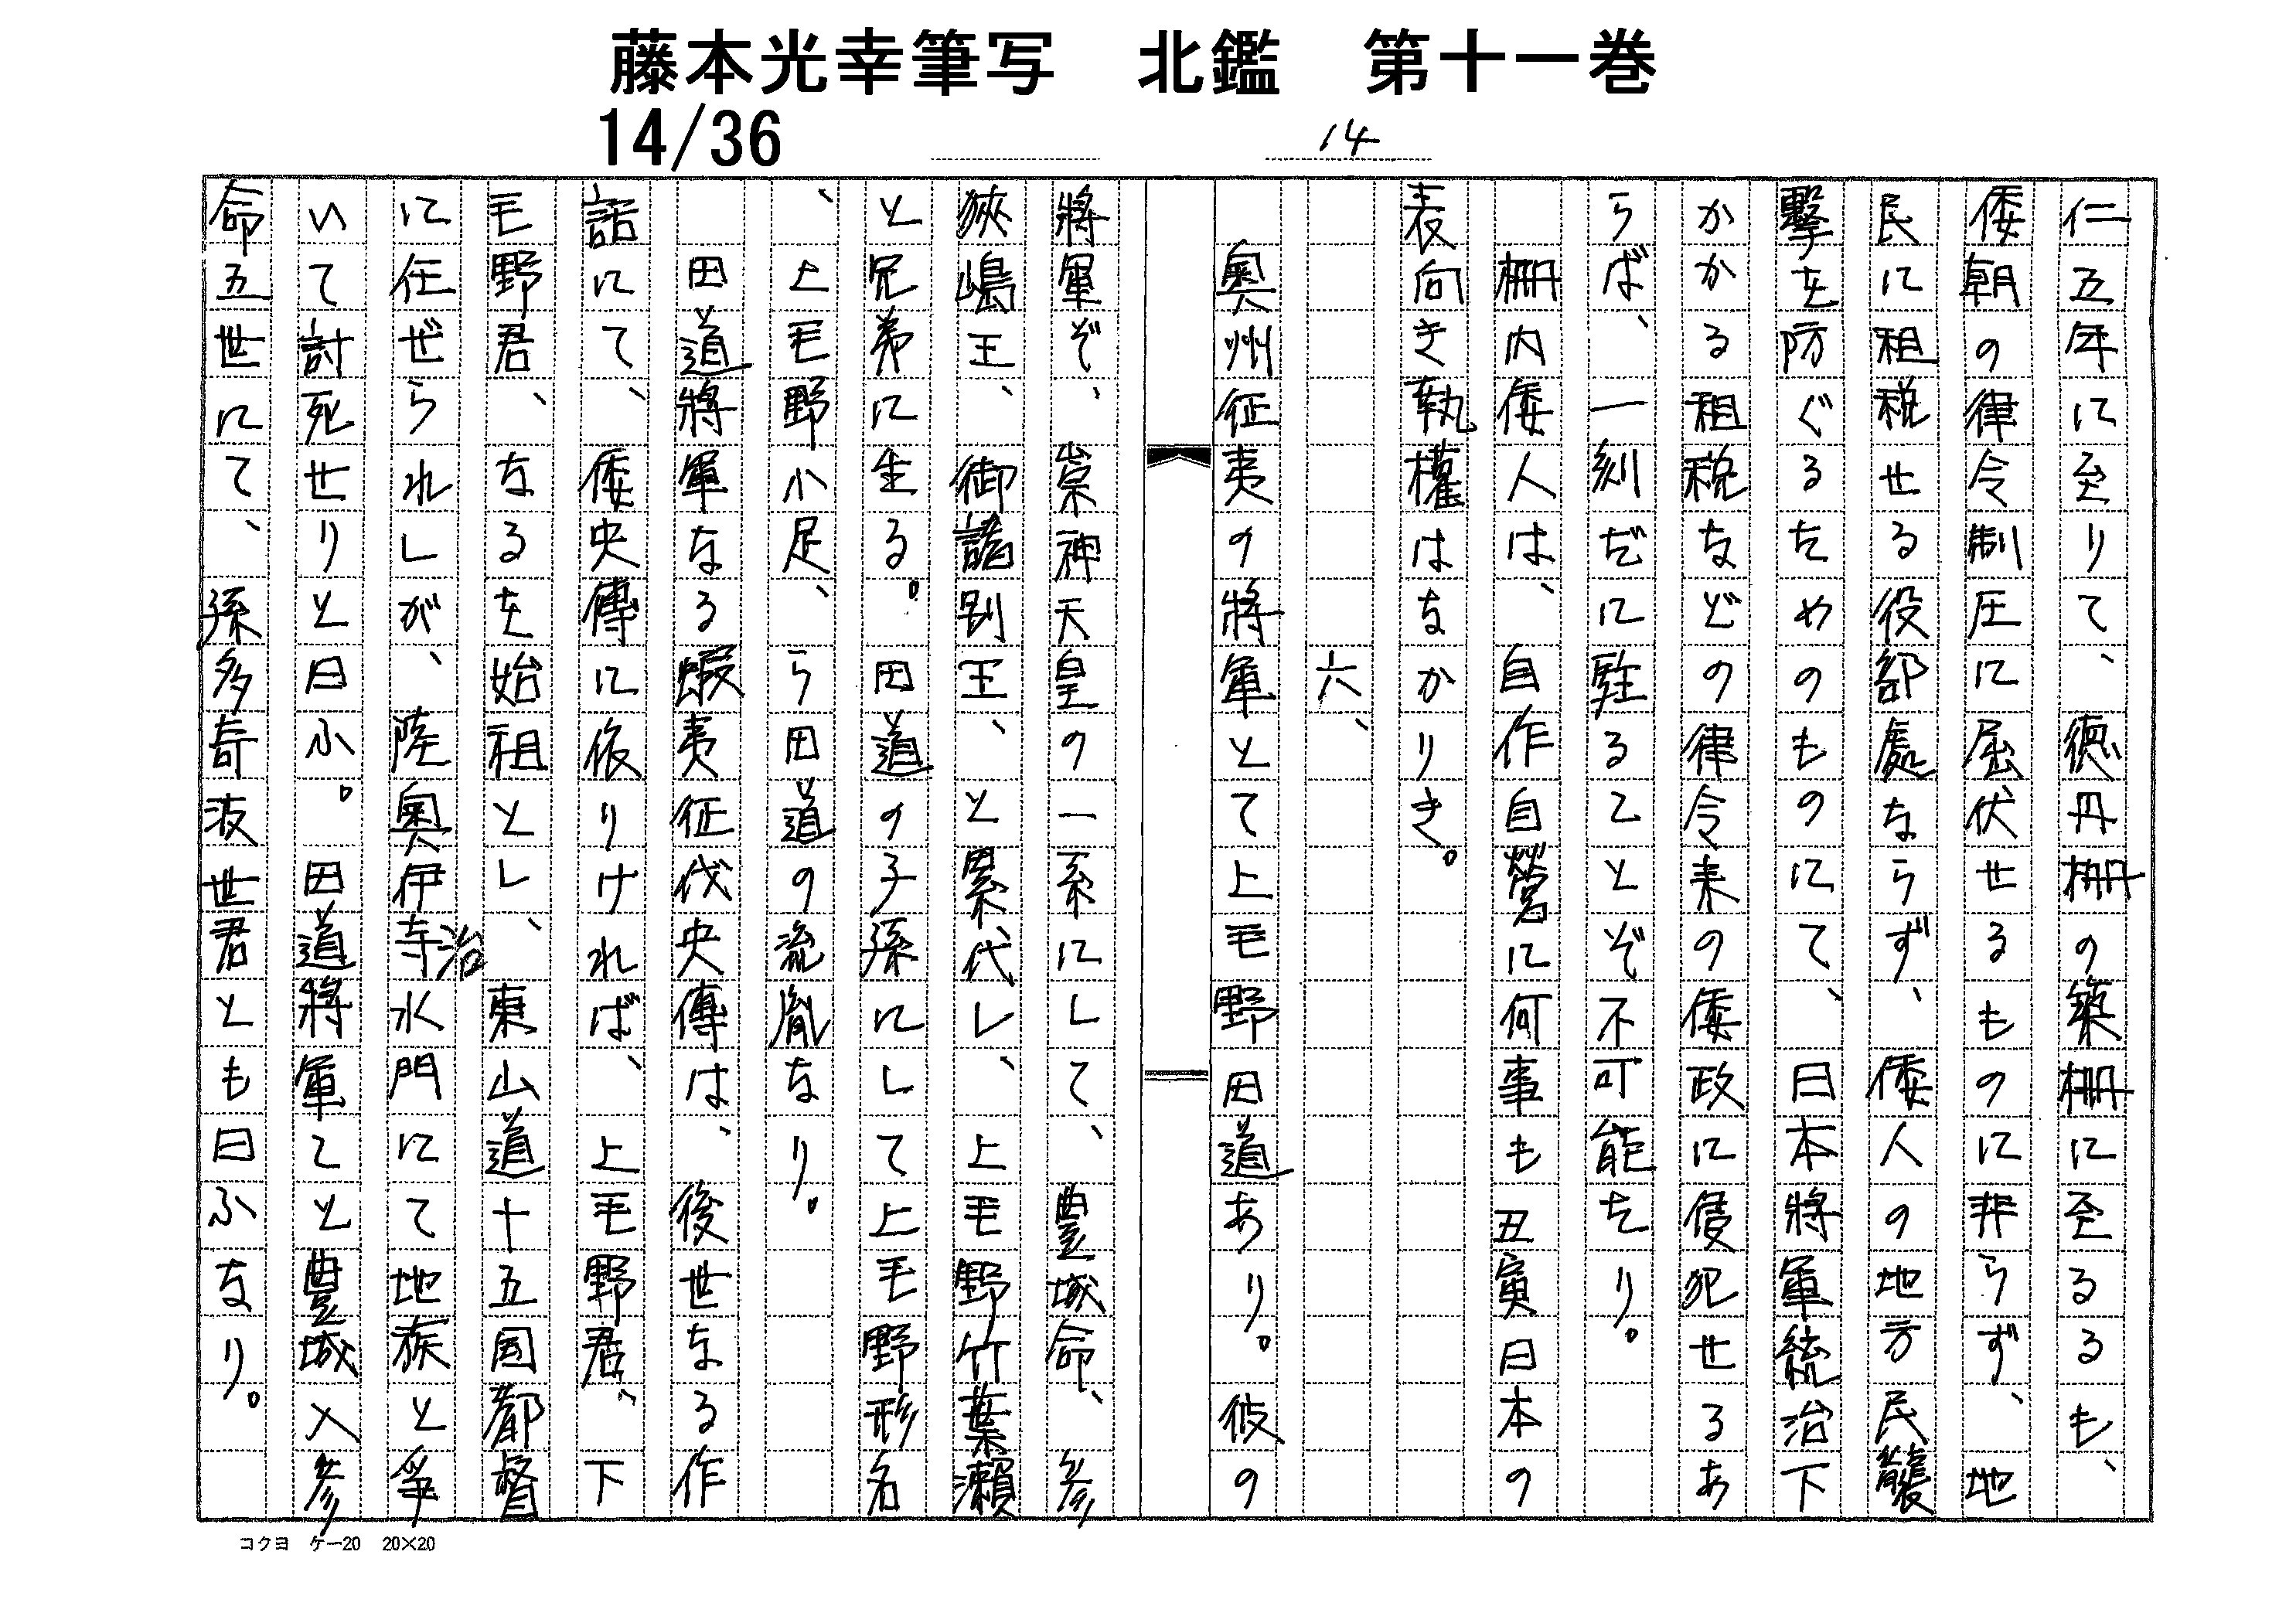 藤本光幸筆写　北鑑　第十一巻
14/36
14
仁五年に至りて、徳丹柵の築柵に至るも、
倭朝の律令制圧に屈伏せるものに非らず、地
民に租税せる役部處ならず、倭人の地方民襲
撃を防ぐるためのものにて、日本將軍統治下
かかる租税などの律令来の倭政に侵犯せるあ
らば、一刻だに駐ることぞ不可能たり。
柵内倭人は、自作自営に何事も丑寅日本の
表向き執權はなかりき。
六、
奥州征夷の將軍とて上毛野田道あり。彼の
將軍ぞ、崇神天皇の一系にして、豊城命、彦
狹嶋王、御諸別王、と累代し、上毛野竹葉瀬
と兄弟に生る。田道の子孫にして上毛野形名
、上毛野小足、ら田道の流胤なり。
田道將軍なる蝦夷征伐央傳は、後世なる作
話にて、倭央傳に依りければ、上毛野君、下
毛野君、なるを始祖とし、東山道十五国都督
に任ぜられしが、陸奥伊寺治水門にて地族と爭
いて討死せりと曰ふ。田道將軍こと豊城入彦
命五世にて、孫多奇波世君とも曰ふなり。
コクヨ　ケー20　20×20